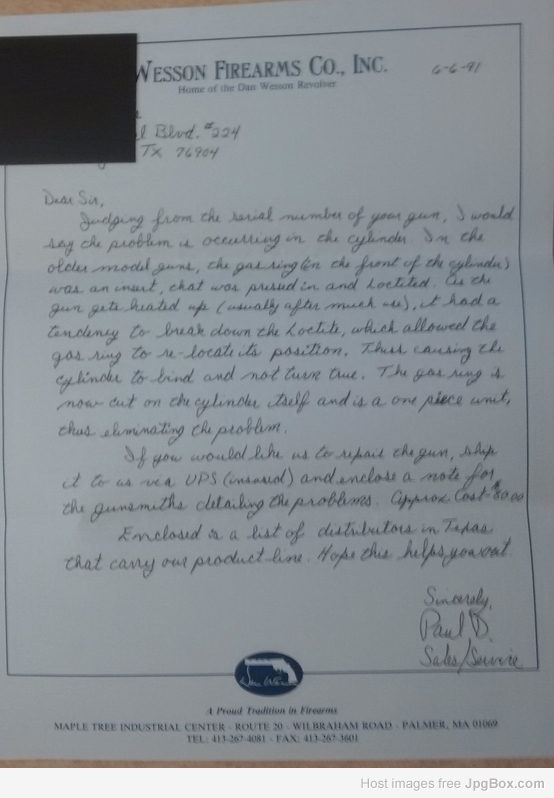 WESSON FIREARMS CO., INC.
Home of the Dan Wesson Revolver
6-6-91
l Blvd. #224
TX 76904
Dear Sir,
Judging from the serial number of your gun, I would
say the problem is occurring in the cylinder. In the
older model guns, the gas ring (on the front of the cylinder)
was an insert, that was pressed in and Loctited. As the
gun gets heated up (usually after much use), it had a
tendency to break down the Loctite, which allowed the
gas ring to re-locate its position. Thus causing the
cylinder to bind and not turn true. The gas ring is
now cut on the cylinder itself and is a one piece unit,
thus eliminating the problem.
If you would like us to repair the gun, ship
it to us via UPS (insured) and enclose a note for
the gunsmiths detailing the problems. Approx Cost $80.00
Enclosed is a list of distributors in Texas
that carry our product line. Hope this helps you out.
Sincerely,
Paul D.
Sales/Service
Dan Wesson
A Proud Tradition in Firearms
MAPLE TREE INDUSTRIAL CENTER - ROUTE 20 - WILBRAHAM ROAD - PALMER, MA 01069
TEL: 413-267-4081 - FAX: 413-267-3601
Host images free JpgBox.com